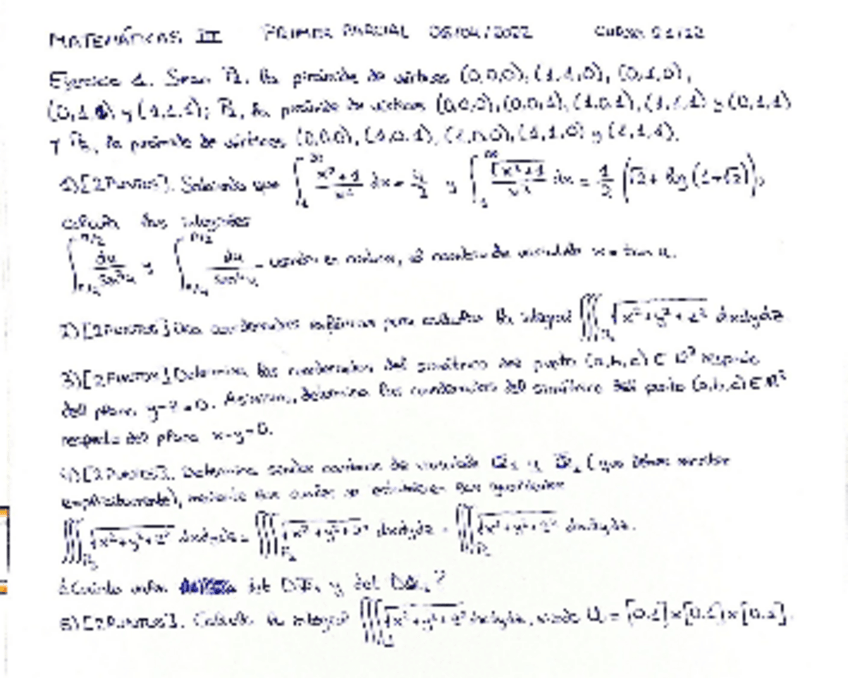 MATEMÁTICAS III PRIMER PARCIAL 05/04/2022 CURSO 21/22
Ejercicio 1. Sean P₁, la pirámide de vértices (0,0,0), (1,1,0), (0,1,0),
(0,1,1) y (1,1,1); P₂, la pirámide de vértices (0,0,0), (0,0,1), (1,0,1), (1,1,1) y (0,1,1)
y P₃, la pirámide de vértices (0,0,0), (1,0,1), (1,0,0), (1,1,0) y (1,1,1).
1) [2 Puntos]. Sabiendo que ∫ dx = y ∫ √(x²+1) dx = 1/2 (√2 + log(1+√2)),
calcula las integrales
∫ du y ∫ du usando el cambio de variable x = tan u.
2) [2 Puntos] Usa coordenadas esféricas para calcular la integral ∭ √(x²+y²+z²) dxdydz
3) [2 Puntos] Determina las coordenadas del simétrico del punto (a,b,c) ∈ ℝ³ respecto
del plano y-z=0. Asimismo, determina las coordenadas del simétrico del punto (a,b,c) ∈ ℝ³
respecto del plano x-y=0.
4) [2 Puntos]. Determina sendos cambios de variable Φ₁ y Φ₂ (que debes escribir
explícitamente), mediante los cuales se establecen las igualdades
∭ √(x²+y²+z²) dxdydz = ∭ √(x²+y²+z²) dxdydz = ∭ √(x²+y²+z²) dxdydz.
¿Cuánto valen det DΦ₁ y det DΦ₂?
5) [2 Puntos]. Calcula la integral ∭ √(x²+y²+z²) dxdydz, siendo = [0,1]×[0,1]×[0,1].